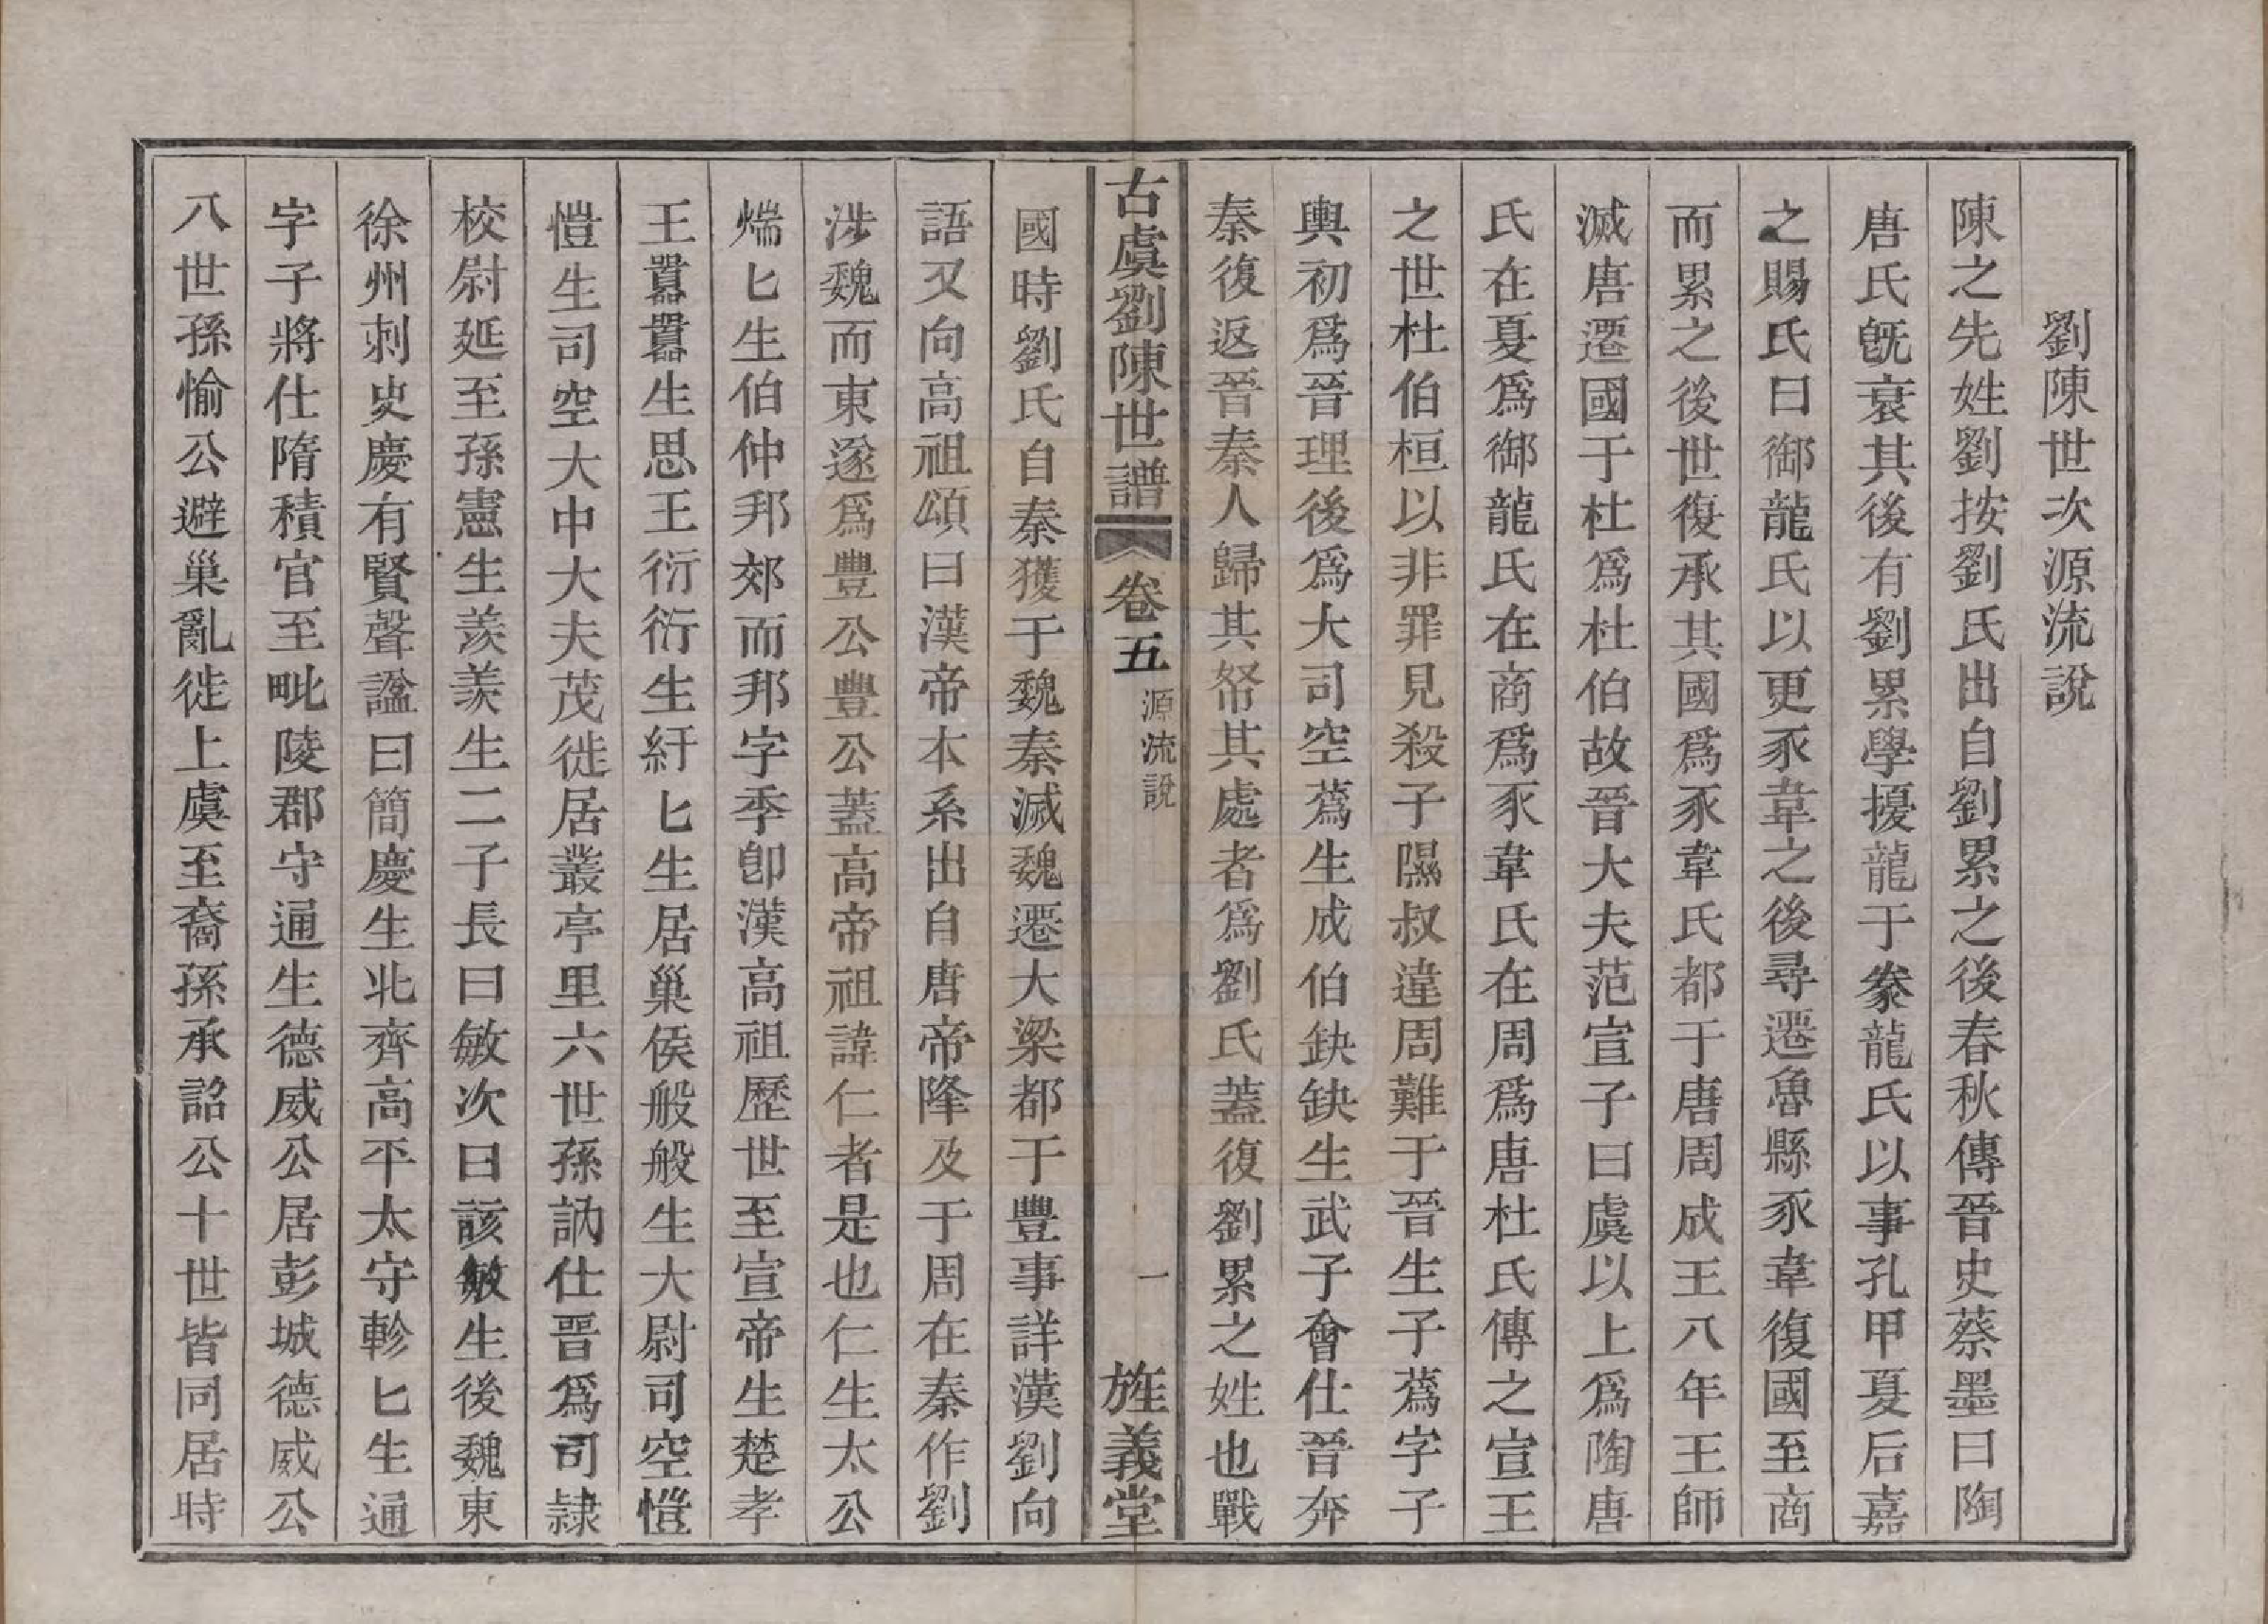 劉陳世次源流說
陳之先姓劉按劉氏出自劉累之後春秋傳晉史蔡墨曰陶
唐氏旣衰其後有劉累學擾龍于豢龍氏以事孔甲夏后嘉
之賜氏曰御龍氏以更豕韋之後尋遷魯縣豕韋復國至商
而累之後世復承其國爲豕韋氏都于唐周成王八年王師
滅唐遷國于杜爲杜伯故晉大夫范宣子曰虞以上爲陶唐
氏在夏爲御龍氏在商爲豕韋氏在周爲唐杜氏傳之宣王
之世杜伯桓以非罪見殺子隰叔違周難于晉生子蔿字子
輿初爲晉理後爲大司空蔿生成伯缺缺生武子會仕晉奔
秦復返晉秦人歸其帑其處者爲劉氏蓋復劉累之姓也戰
古虞劉陳世譜 卷五 源流說 一 旌義堂
國時劉氏自秦獲于魏秦滅魏遷大梁都于豐事詳漢劉向
語又向高祖頌曰漢帝本系出自唐帝降及于周在秦作劉
涉魏而東遂爲豐公豐公蓋高帝祖諱仁者是也仁生太公
煓匕生伯仲邦郊而邦字季卽漢高祖歷世至宣帝生楚孝
王囂囂生思王衍衍生紆匕生居巢侯般般生大尉司空愷
愷生司空大中大夫茂徙居叢亭里六世孫訥仕晋爲司隷
校尉延至孫憲生羨羨生二子長曰敏次曰該敏生後魏東
徐州刺史慶有賢聲諡曰簡慶生北齊高平太守軫匕生通
字子將仕隋積官至毗陵郡守通生德威公居彭城德威公
八世孫愉公避巢亂徙上虞至裔孫承詔公十世皆同居時